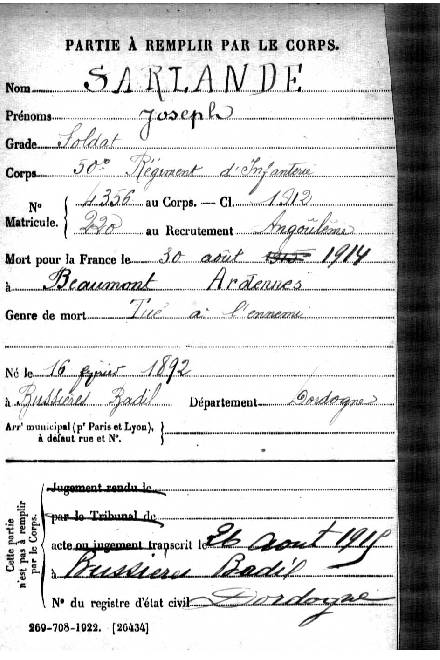 PARTIE À REMPLIR PAR LE CORPS.
Nom SARLANDE
Prénoms Joseph
Grade Soldat
Corps 50e Régiment d'Infanterie
N° Matricule. { 4356 au Corps. — Cl. 1912
220 au Recrutement Angoulême
Mort pour la France le 30 août 1914
à Beaumont Ardennes
Genre de mort Tué à l'ennemi
Né le 16 février 1892
à Bussières Badil Département Dordogne
Arrt municipal (pr Paris et Lyon),
à défaut rue et N°.
Cette partie n'est pas à remplir par le Corps.
Jugement rendu le
par le Tribunal de
acte ou jugement transcrit le 26 aout 1915
à Bussieres Badil
N° du registre d'état civil Dordogne
269-708-1922. [26434]